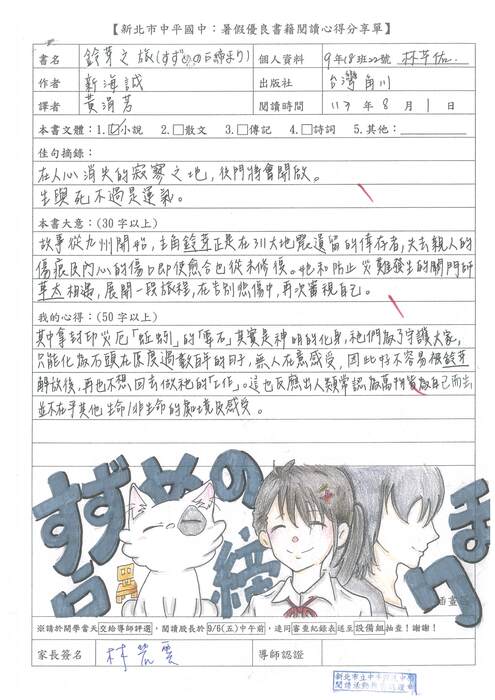 【新北市中平國中：暑假優良書籍閱讀心得分享單】
書名 鈴芽之旅(すずめの戸締まり) 個人資料 9年18班22號 林芊佑
作者 新海誠 出版社 台灣角川
譯者 黃涓芳 閱讀時間 113年8月1日
本書文體：1.☑小說 2.□散文 3.□傳記 4.□詩詞 5.其他：
佳句摘錄：
在人心消失的寂寥之地，後門將會開啟。
生與死不過是運氣。
本書大意：(30字以上)
故事從九州開始，主角鈴芽正是在311大地震遺留的倖存者，失去親人的
傷痕與內心的傷口即使癒合也從未修復。她和防止災難發生的關門師
草太相遇，展開一段旅程，在告別悲傷中，再次審視自己。
我的心得：(50字以上)
其中拿封印災厄「蚯蚓」的「要石」其實是神明的化身，祂們為了守護大家，
只能化為石頭在原度過數百年的日子，無人在意感受，因此好不容易被鈴芽
解放後，再也不想回去做祂的「工作」。這也反應出人類常認為萬物皆為自己而去
並不在乎其他生命/非生命的處境與感受。
すずめの
戸締まり
※請於開學當天交給導師評選，閱讀股長於9/6(五)中午前，連同審查紀錄表送至設備組抽查！謝謝！
家長簽名 林 導師認證
新北市立中平國民中學